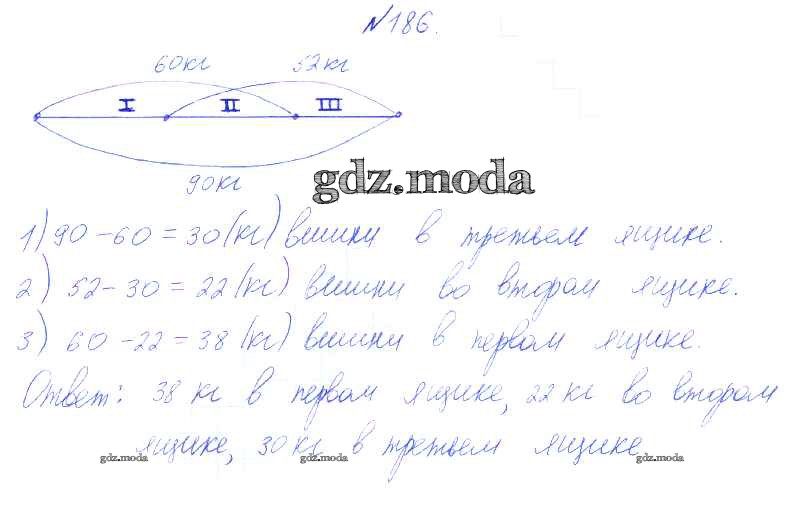 №186.
60кг 52кг
I II III
90кг
gdz.moda
1) 90-60=30(кг) вишни в третьем ящике.
2) 52-30=22(кг) вишни во втором ящике.
3) 60-22=38(кг) вишни в первом ящике.
Ответ: 38 кг в первом ящике, 22 кг во втором
ящике, 30 кг в третьем ящике
gdz.moda gdz.moda gdz.moda